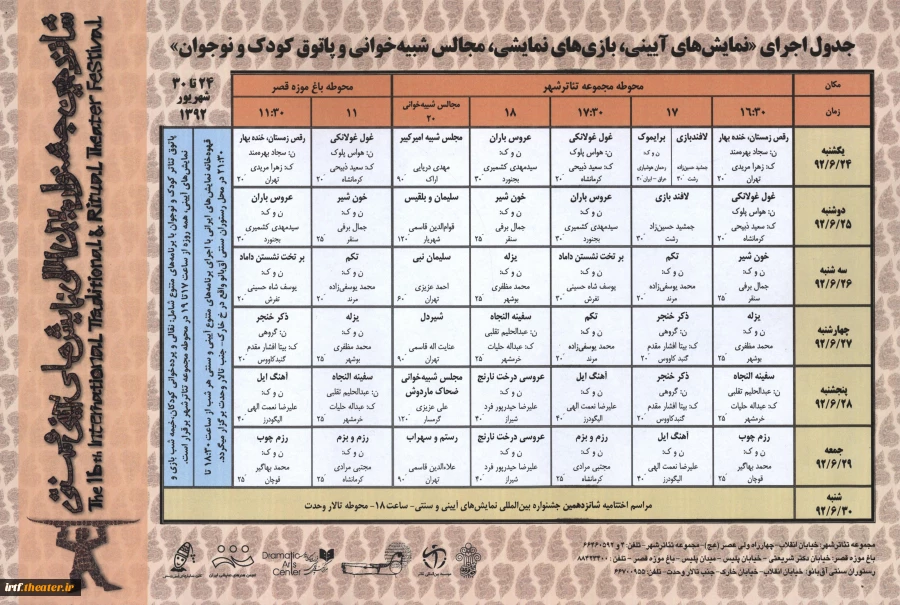 جدول اجرای «نمایش‌های آیینی، بازی‌های نمایشی، مجالس شبیه‌خوانی و پاتوق کودک و نوجوان»
شانزدهمین جشنواره بین‌المللی نمایش‌های آیینی و سنتی
The 16th International Traditional & Ritual Theater Festival
۲۴ تا ۳۰
شهریور
۱۳۹۲
مکان
محوطه مجموعه تئاترشهر
محوطه باغ موزه قصر
زمان
۱۶:۳۰
۱۷
۱۷:۳۰
۱۸
مجالس شبیه‌خوانی
۲۰
۱۱
۱۱:۳۰
یکشنبه
۹۲/۶/۲۴
رقص زمستان، خنده بهار
ن: سجاد بهره‌مند
ک: زهرا مریدی
تهران ۲۰
لافندبازی
جمشید حسین‌زاده
رشت ۳۰
برایموک
ن و ک:
رحمان هوشیاری
عراق - ایران ۲۰
غول غولانکی
ن: هواس پلوک
ک: سعید ذبیحی
کرمانشاه ۲۰
عروس باران
ن و ک:
سیدمهدی کشمیری
بجنورد ۳۰
مجلس شبیه امیرکبیر
مهدی دریایی
اراک ۹۰
غول غولانکی
ن: هواس پلوک
ک: سعید ذبیحی
کرمانشاه ۲۰
رقص زمستان، خنده بهار
ن: سجاد بهره‌مند
ک: زهرا مریدی
تهران ۲۰
دوشنبه
۹۲/۶/۲۵
غول غولانکی
ن: هواس پلوک
ک: سعید ذبیحی
کرمانشاه ۲۰
لافند بازی
جمشید حسین‌زاد
رشت ۳۰
عروس باران
ن و ک:
سیدمهدی کشمیری
بجنورد ۳۰
خون شیر
ن و ک:
جمال برفی
سنقر ۲۵
سلیمان و بلقیس
قوام‌الدین قاسمی
شهریار ۱۲۰
خون شیر
ن و ک:
جمال برفی
سنقر ۲۵
عروس باران
ن و ک:
سیدمهدی کشمیری
بجنورد ۳۰
سه شنبه
۹۲/۶/۲۶
خون شیر
ن و ک:
جمال برفی
سنقر ۲۵
تکم
ن و ک:
محمد یوسفی‌زاده
مرند ۲۰
بر تخت نشستن داماد
ن و ک:
یوسف شاه حسینی
تفرش ۳۰
یزله
ن و ک:
محمد مظفری
بوشهر ۲۵
سلیمان نبی
احمد عزیزی
تهران ۶۰
تکم
ن و ک:
محمد یوسفی‌زاده
مرند ۲۰
بر تخت نشستن داماد
ن و ک:
یوسف شاه حسینی
تفرش ۳۰
چهارشنبه
۹۲/۶/۲۷
یزله
ن و ک:
محمد مظفری
بوشهر ۲۵
ذکر خنجر
ن: گروهی
ک: بیتا افشار مقدم
گنبدکاووس ۲۰
تکم
ن و ک:
محمد یوسفی‌زاده
مرند ۲۰
سفینه النجاه
ن: عبدالحلیم تقلبی
ک: عبداله حلیات
خرمشهر ۲۵
شیردل
عنایت اله قاسمی
تهران ۹۰
یزله
ن و ک:
محمد مظفری
بوشهر ۲۵
ذکر خنجر
ن: گروهی
ک: بیتا افشار مقدم
گنبدکاووس ۲۰
پنجشنبه
۹۲/۶/۲۸
سفینه النجاه
ن: عبدالحلیم تقلبی
ک: عبداله حلیات
خرمشهر ۲۵
ذکر خنجر
ن: گروهی
ک: بیتا افشار مقدم
گنبدکاووس ۲۰
آهنگ ایل
ن و ک:
علیرضا نعمت الهی
الیگودرز ۲۰
عروسی درخت نارنج
ن و ک:
علیرضا حیدرپور فرد
شیراز ۴۰
مجلس شبیه‌خوانی
ضحاک ماردوش
علی عزیزی
گرمسار ۱۲۰
سفینه النجاه
ن: عبدالحلیم تقلبی
ک: عبداله حلیات
خرمشهر ۲۵
آهنگ ایل
ن و ک:
علیرضا نعمت الهی
الیگودرز ۲۰
جمعه
۹۲/۶/۲۹
رزم چوب
ن و ک:
محمد بهاگیر
قوچان ۲۵
آهنگ ایل
ن و ک:
علیرضا نعمت الهی
الیگودرز ۴۰
رزم و بزم
ن و ک:
مجتبی مرادی
کرمانشاه ۲۵
عروسی درخت نارنج
ن و ک:
علیرضا حیدرپور فرد
شیراز ۴۰
رستم و سهراب
علاءالدین قاسمی
تهران ۹۰
رزم و بزم
ن و ک:
مجتبی مرادی
کرمانشاه ۲۵
رزم چوب
ن و ک:
محمد بهاگیر
قوچان ۲۵
شنبه
۹۲/۶/۳۰
مراسم اختتامیه شانزدهمین جشنواره بین‌المللی نمایش‌های آیینی و سنتی- ساعت ۱۸- محوطه تالار وحدت
پاتوق تئاتر کودک و نوجوان با برنامه‌های متنوع شامل: نقالی و پرده‌خوانی کودکان-خیمه شب بازی و
نمایش‌های آیینی، همه روزه از ساعت ۱۷ تا ۱۹ در محوطه مجموعه تئاترشهر برقرار است.
قهوه‌خانه نمایش‌های ایرانی با اجرای برنامه‌های متنوع آیینی و سنتی هر شب از ساعت ۱۸:۳۰ تا
۲۱:۳۰ در محل رستوران سنتی آق‌بانو واقع در خ خارک- جنب تالار وحدت برگزار میگردد.
مجموعه تئاترشهر: خیابان انقلاب-چهارراه ولی عصر (عج)- مجموعه تئاترشهر - تلفن: ۲ و ۶۶۴۶۰۵۹۲
باغ موزه قصر: خیابان دکتر شریعتی - خیابان پلیس - میدان پلیس - باغ موزه قصر - تلفن: ۸۸۴۹۳۳۰۰
رستوران سنتی آق‌بانو: خیابان انقلاب- خیابان خارک- جنب تالار وحدت - تلفن: ۶۶۷۰۰۹۵۵
Dramatic
Arts
Center
irtf.theater.ir